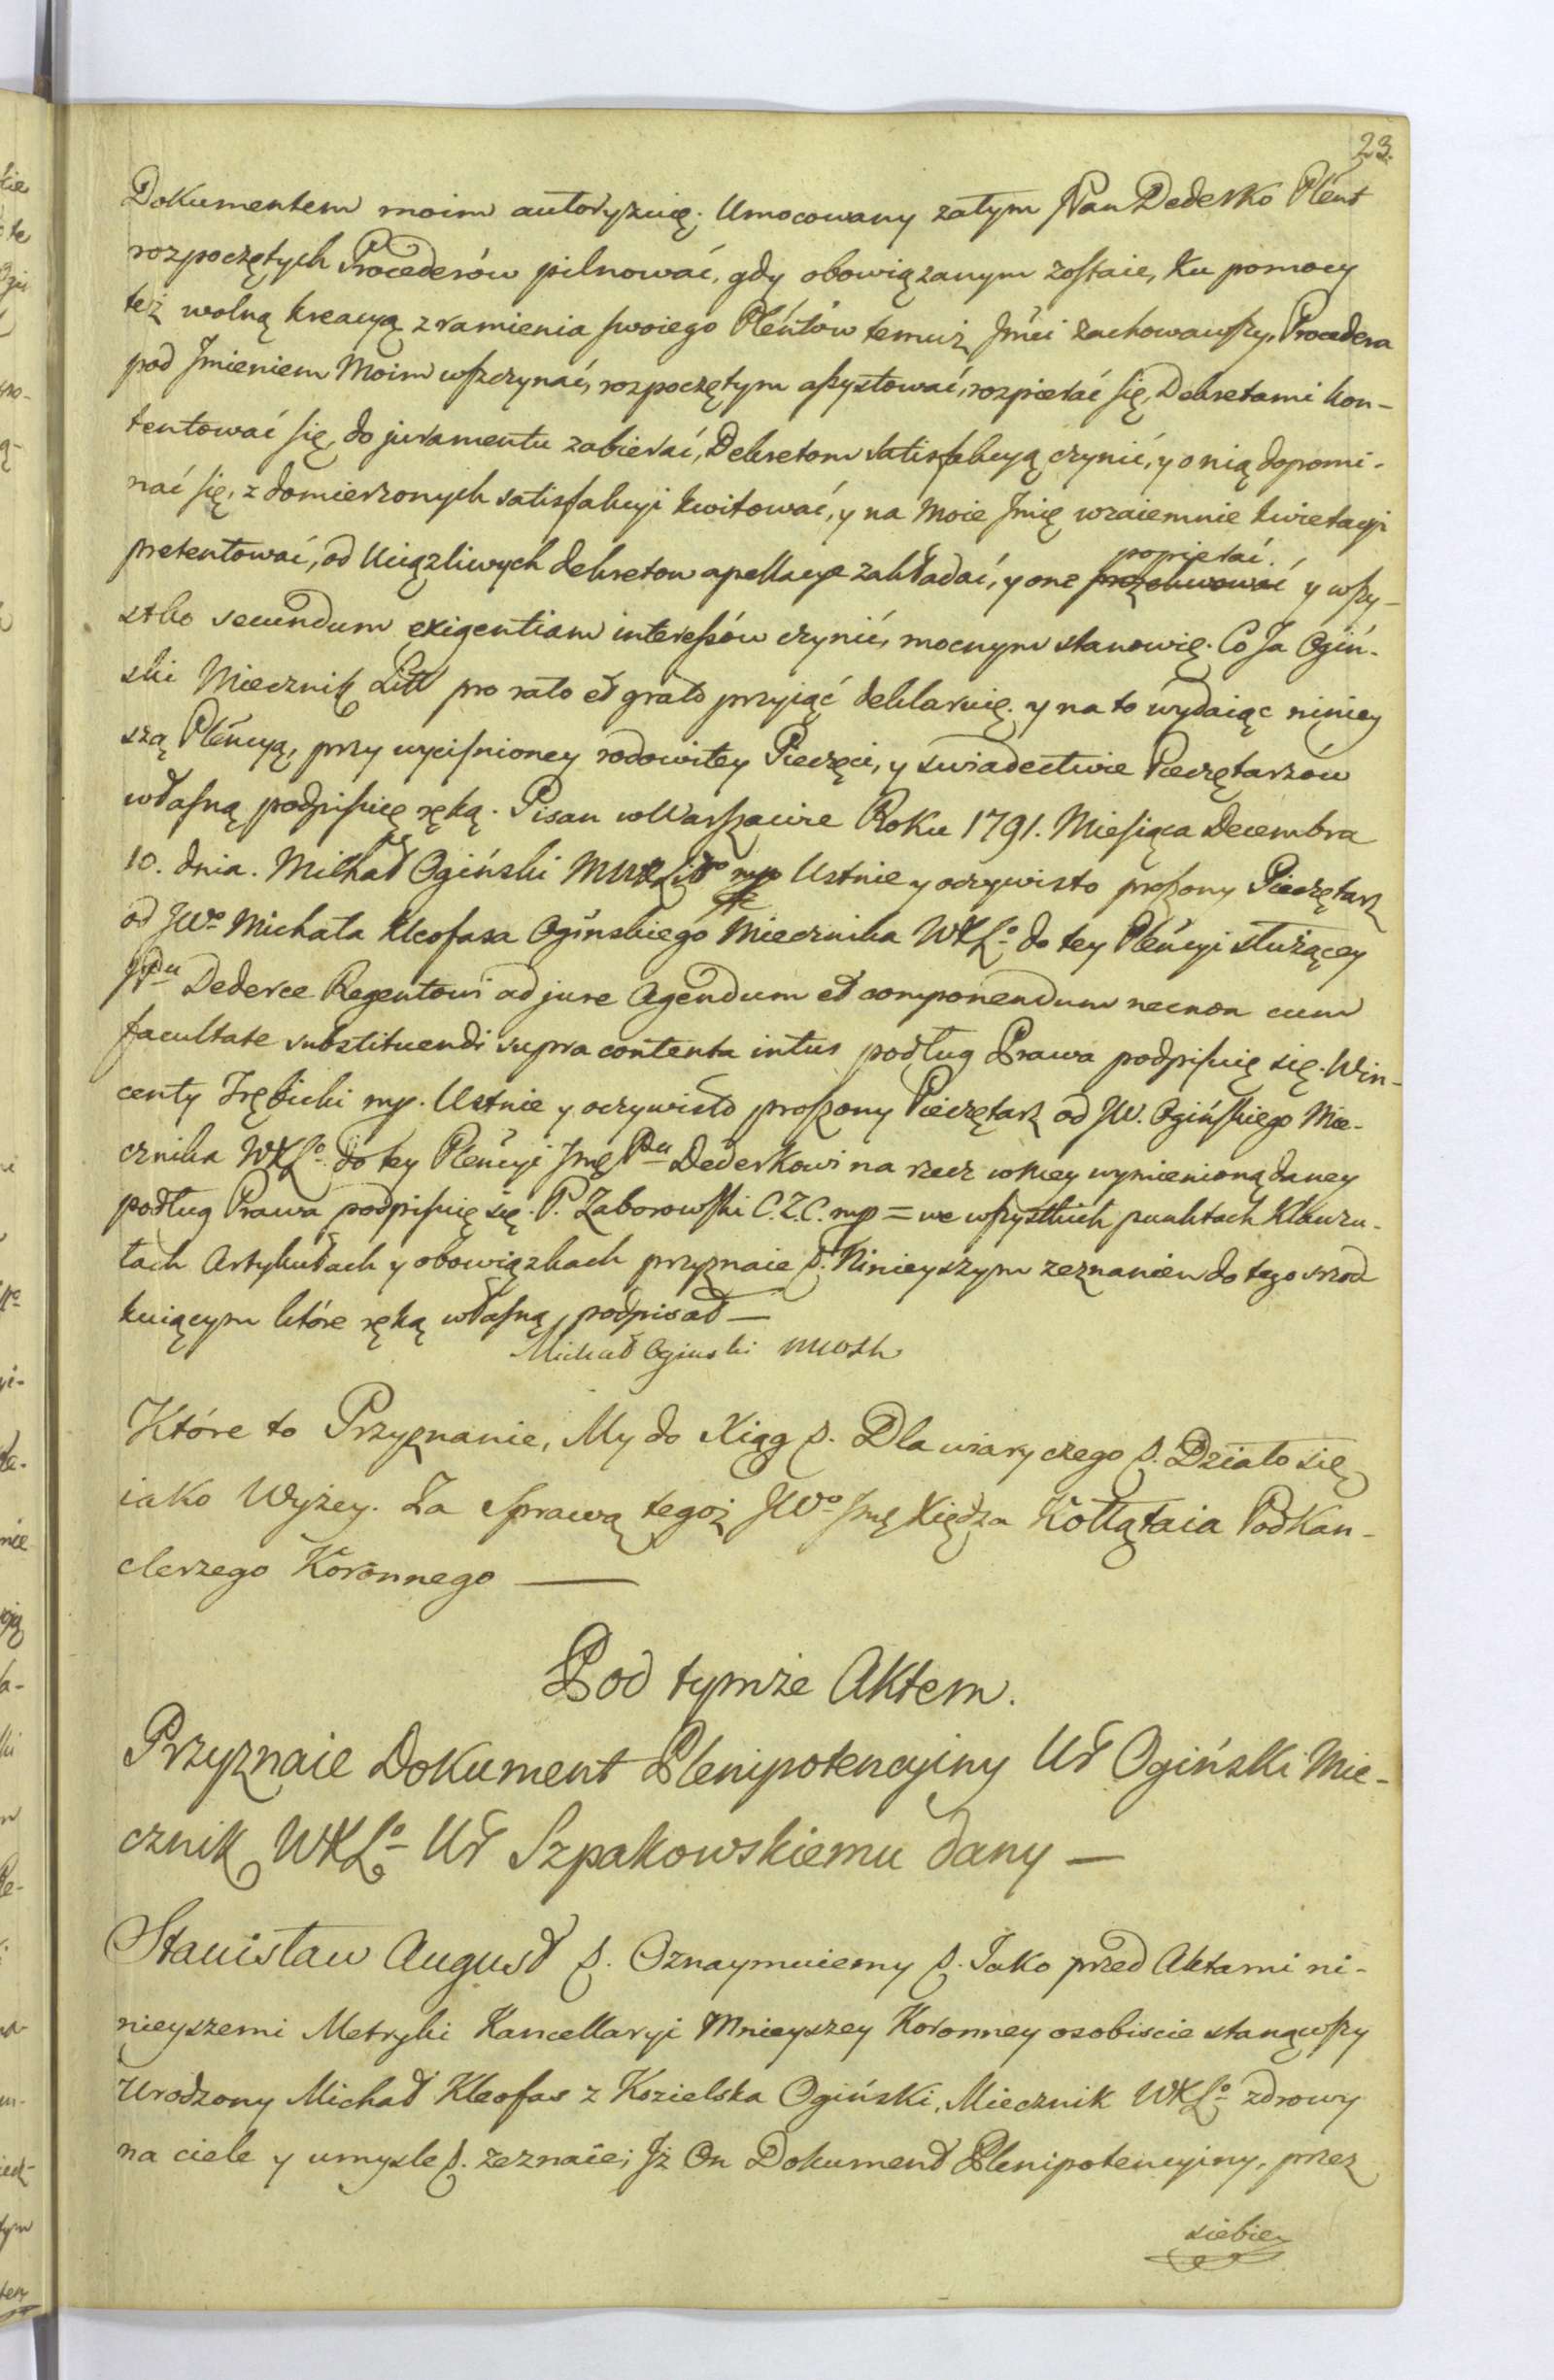 23.
Dokumentem moim autoryzuię. Umocowany zatym JPan Dederko Plent
rozpoczętych Procederów pilnować, gdy obowiązanym zostaie, ku pomocy
też wolną kreacyą z ramienia swoiego Pleńtów temuż Jmći zachowawszy, Procedera
pod Jmieniem Moim wszczynać, rozpoczętym assystować, rozpierać się, Dekretami kon-
tentować się, do juramentu zabierać, Dekretom satisfakcyą czynić, y o nią dopomi-
nać się, z domierzonych satisfakcyi kwitować, y na moie Jmię wzaiemnie kwietacyi
pretentować, od Uciązliwych dekretow apellacye zakładać, y one popierać. y wszy-
stko secundum exigentiam interessów czynić, mocnym stanowię. Co Ja Ogiń-
ski Miecznik Litt pro rato et grato przyiąć deklaruię. y na to wydaiąc niniey
szą Pleńcyą, przy wycisnioney rodowitey Pieczęci, y swiadectwie Pieczętarzów
własną podpisuię ręką. Pisan w Warszawie Roku 1791. Miesiąca Decembra
10. dnia. Michał Ogiński mp Ustnie y oczywisto proszony Pieczętarz
od JWo Michała Kleofasa Ogińskiego Miecznika WXLo do tey Pleńcyi służącey
JPu Dederce Regentowi ad jure Agendum et componendum necnon cum
facultate substituendi supra contenta intus podług Prawa podpisuię się. Win-
centy mp. Ustnie y oczywisto proszony Pieczętarz od JW. Ogińskiego Mie-
cznika WXLo do tey Pleńcyi Jmę Pu Dederkowi na rzecz w niey wymienioną daney
podług Prawa podpisuię się. P. Zaborowski C.Z.C. mp = we wszystkich punktach Klauzu-
łach Artykułach y obowiązkach przyznaie p. Ninieyszym zeznaniem do tego
kuiącym które ręką własną podpisał —
Michał Ogiński
Które to Przyznanie, My do Xiąg p. Dla wiary czego p. Działo się
iako Wyżey. Za Sprawą tegoż JWo Jmę Xiędza Kołłątaia PodKan-
clerzego Koronnego —
Pod tymże Aktem.
Przyznaie Dokument Plenipotencyiny Ur Ogiński Mie-
cznik WXLo Ur Szpakowskiemu dany —
Stanisław August p. Oznaymuiemy p. Jako przed Aktami ni-
nieyszemi Metryki Kancellaryi Mnieyszey Koronney osobiscie stanąwszy
Urodzony Michał Kleofas z Kozielska Ogiński, Miecznik WXLo zdrowy
na ciele y umysle p. zeznaie; Jż On Dokument Plenipotencyiny, przez
siebie